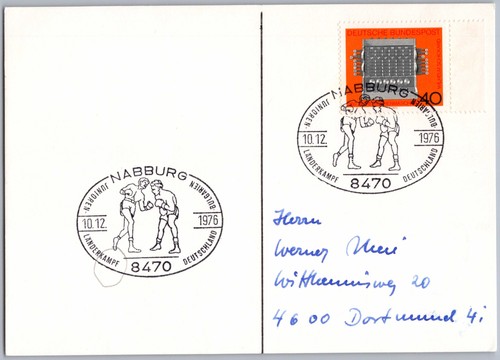 DEUTSCHE BUNDESPOST
40
NABBURG
JUNIOREN
BULGARIEN
10.12.
1976
LÄNDERKAMPF
DEUTSCHLAND
8470
NABBURG
JUNIOREN
BULGARIEN
10.12.
1976
LÄNDERKAMPF
DEUTSCHLAND
8470
Herrn
Werner
20
4600 Dortmund